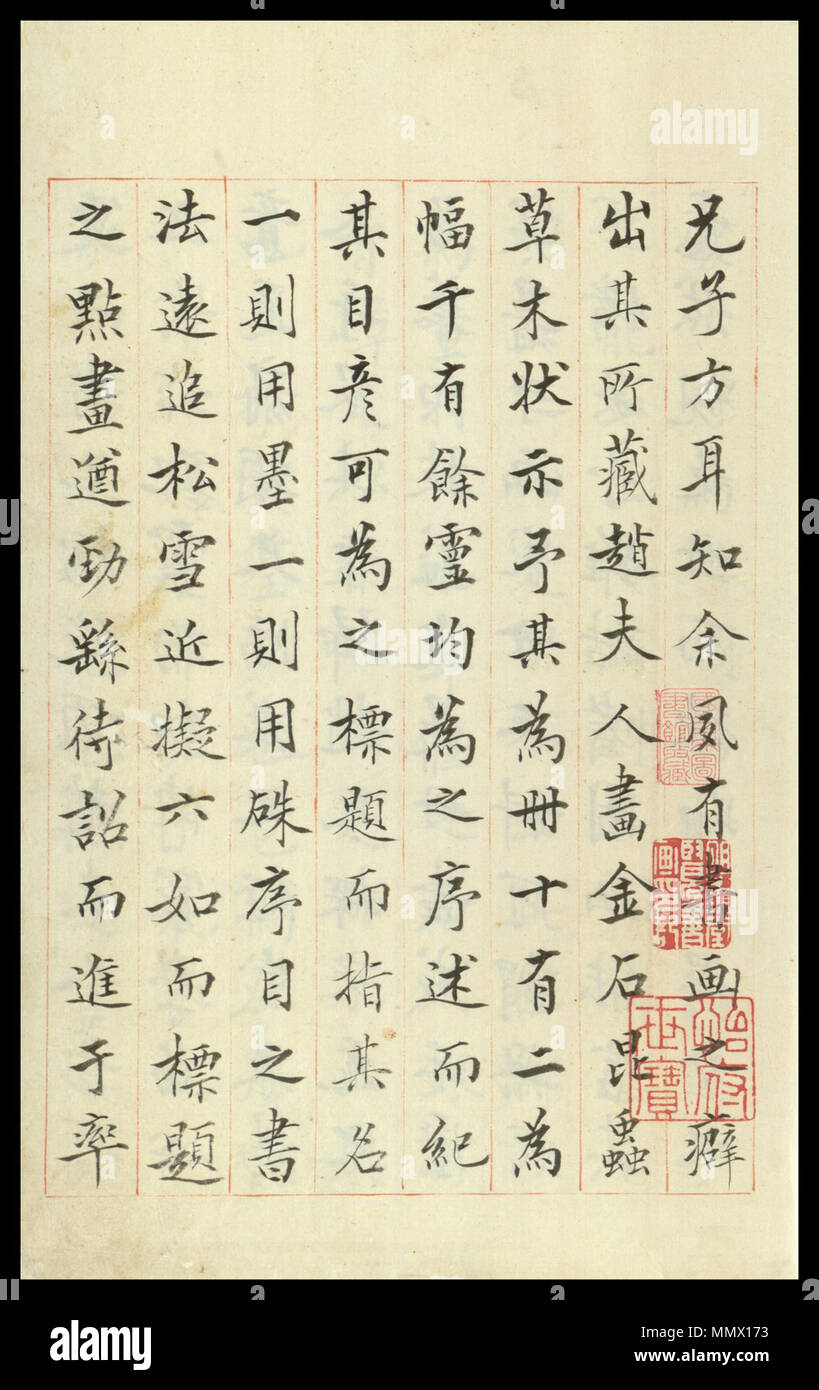 兄子方耳知余夙有書画之癖
出其所藏趙夫人畫金石昆蟲
草木状示予其為冊十有二為
幅千有餘靈均為之序述而紀
其目彦可為之標題而指其名
一則用墨一則用硃序目之書
法遠追松雪近擬六如而標題
之點畫遒勁繇待詔而進于率
alamy
alamy
alamy
Image ID: MMX173
www.alamy.com